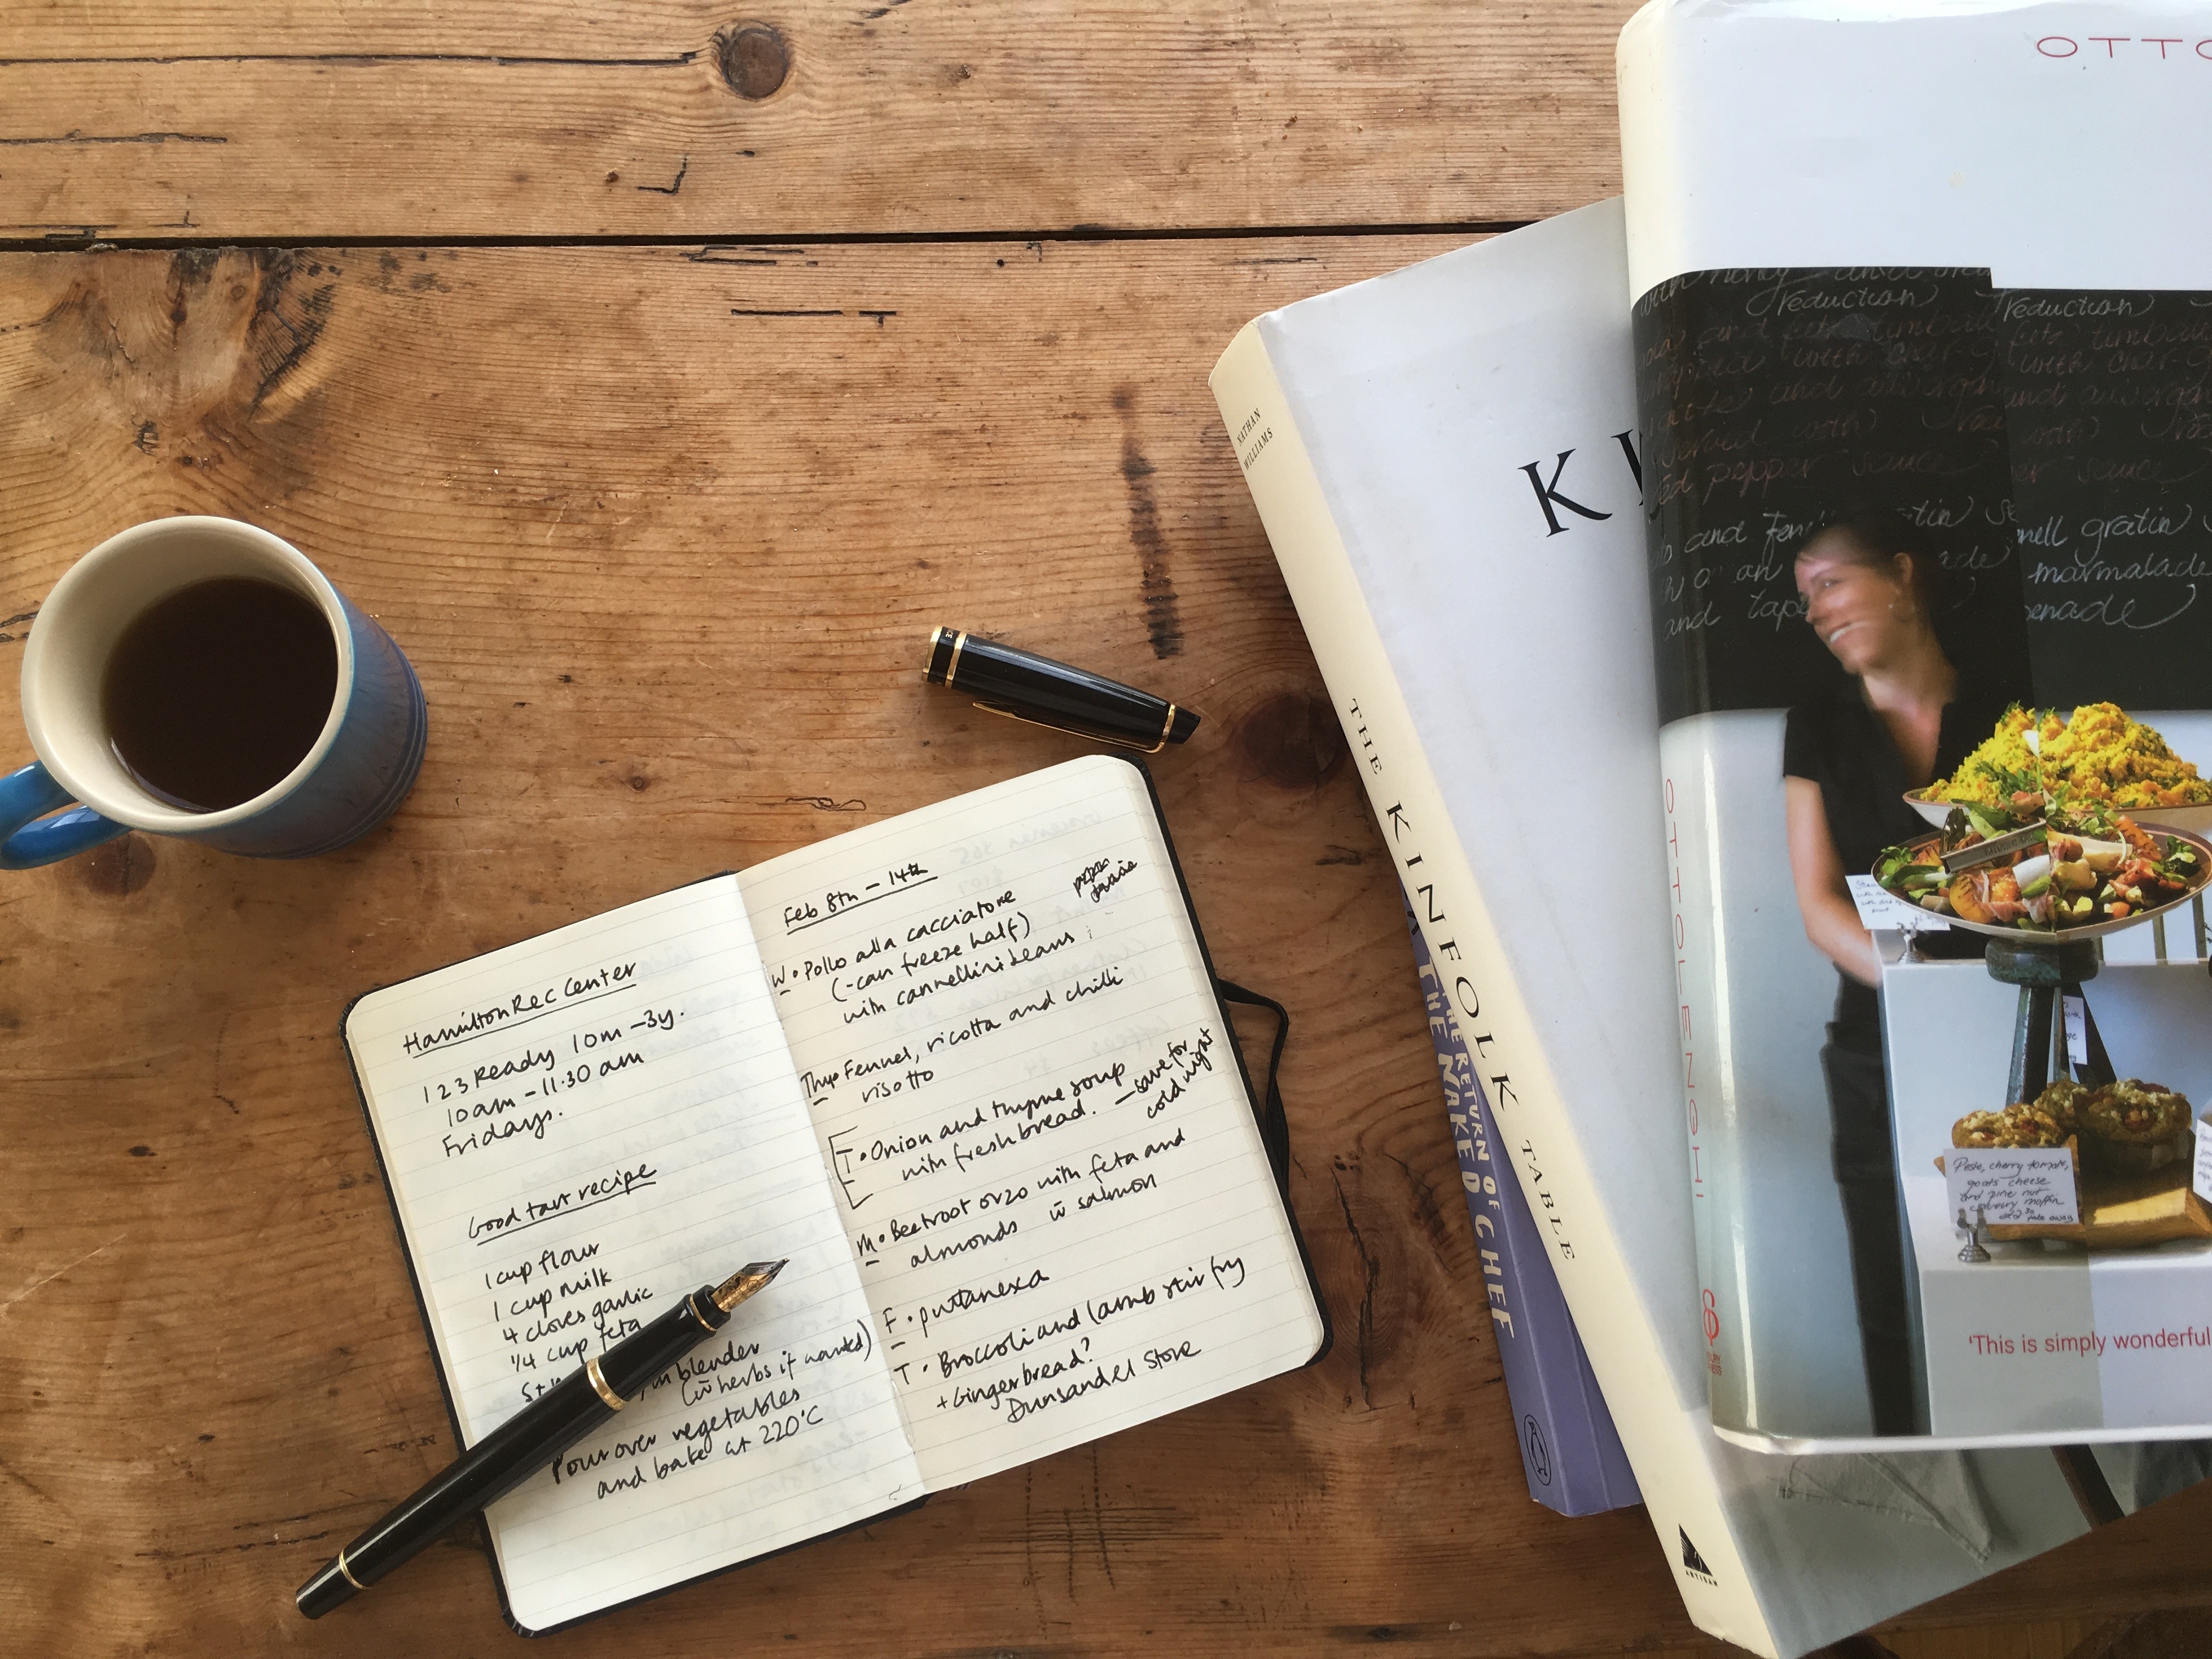 Hamilton Rec Center
123 Ready 10m - 3y.
10am - 11.30 am
Fridays.
Good tart recipe
1 cup flour
1 cup milk
4 cloves garlic
1/4 cup feta
in blender
(w̄ herbs if wanted)
Pour over vegetables
and bake at 220°C
Feb 8th - 14th
W • Pollo alla cacciatore
(- can freeze half)
with cannellini beans
Thu • Fennel, ricotta and chilli
risotto
T • Onion and thyme soup
with fresh bread.
- save for
cold night
M • Beetroot orzo with feta and
almonds w̄ salmon
F • puttanexa
T • Broccoli and lamb stir fry
+ Gingerbread?
Dunsandel Store
NATHAN
WILLIAMS
THE KINFOLK TABLE
ARTISAN
K
THE RETURN OF
THE NAKED CHEF
OTTO
OTTOLENGHI
reduction) reduction)
with char-g with char-g
and aubergin
served with)
red pepper sauce
and fennel gratin
marmalade
and tapenade
Pesto, cherry tomato,
goats cheese
and pine nut
savoury muffin
take away
'This is simply wonderful